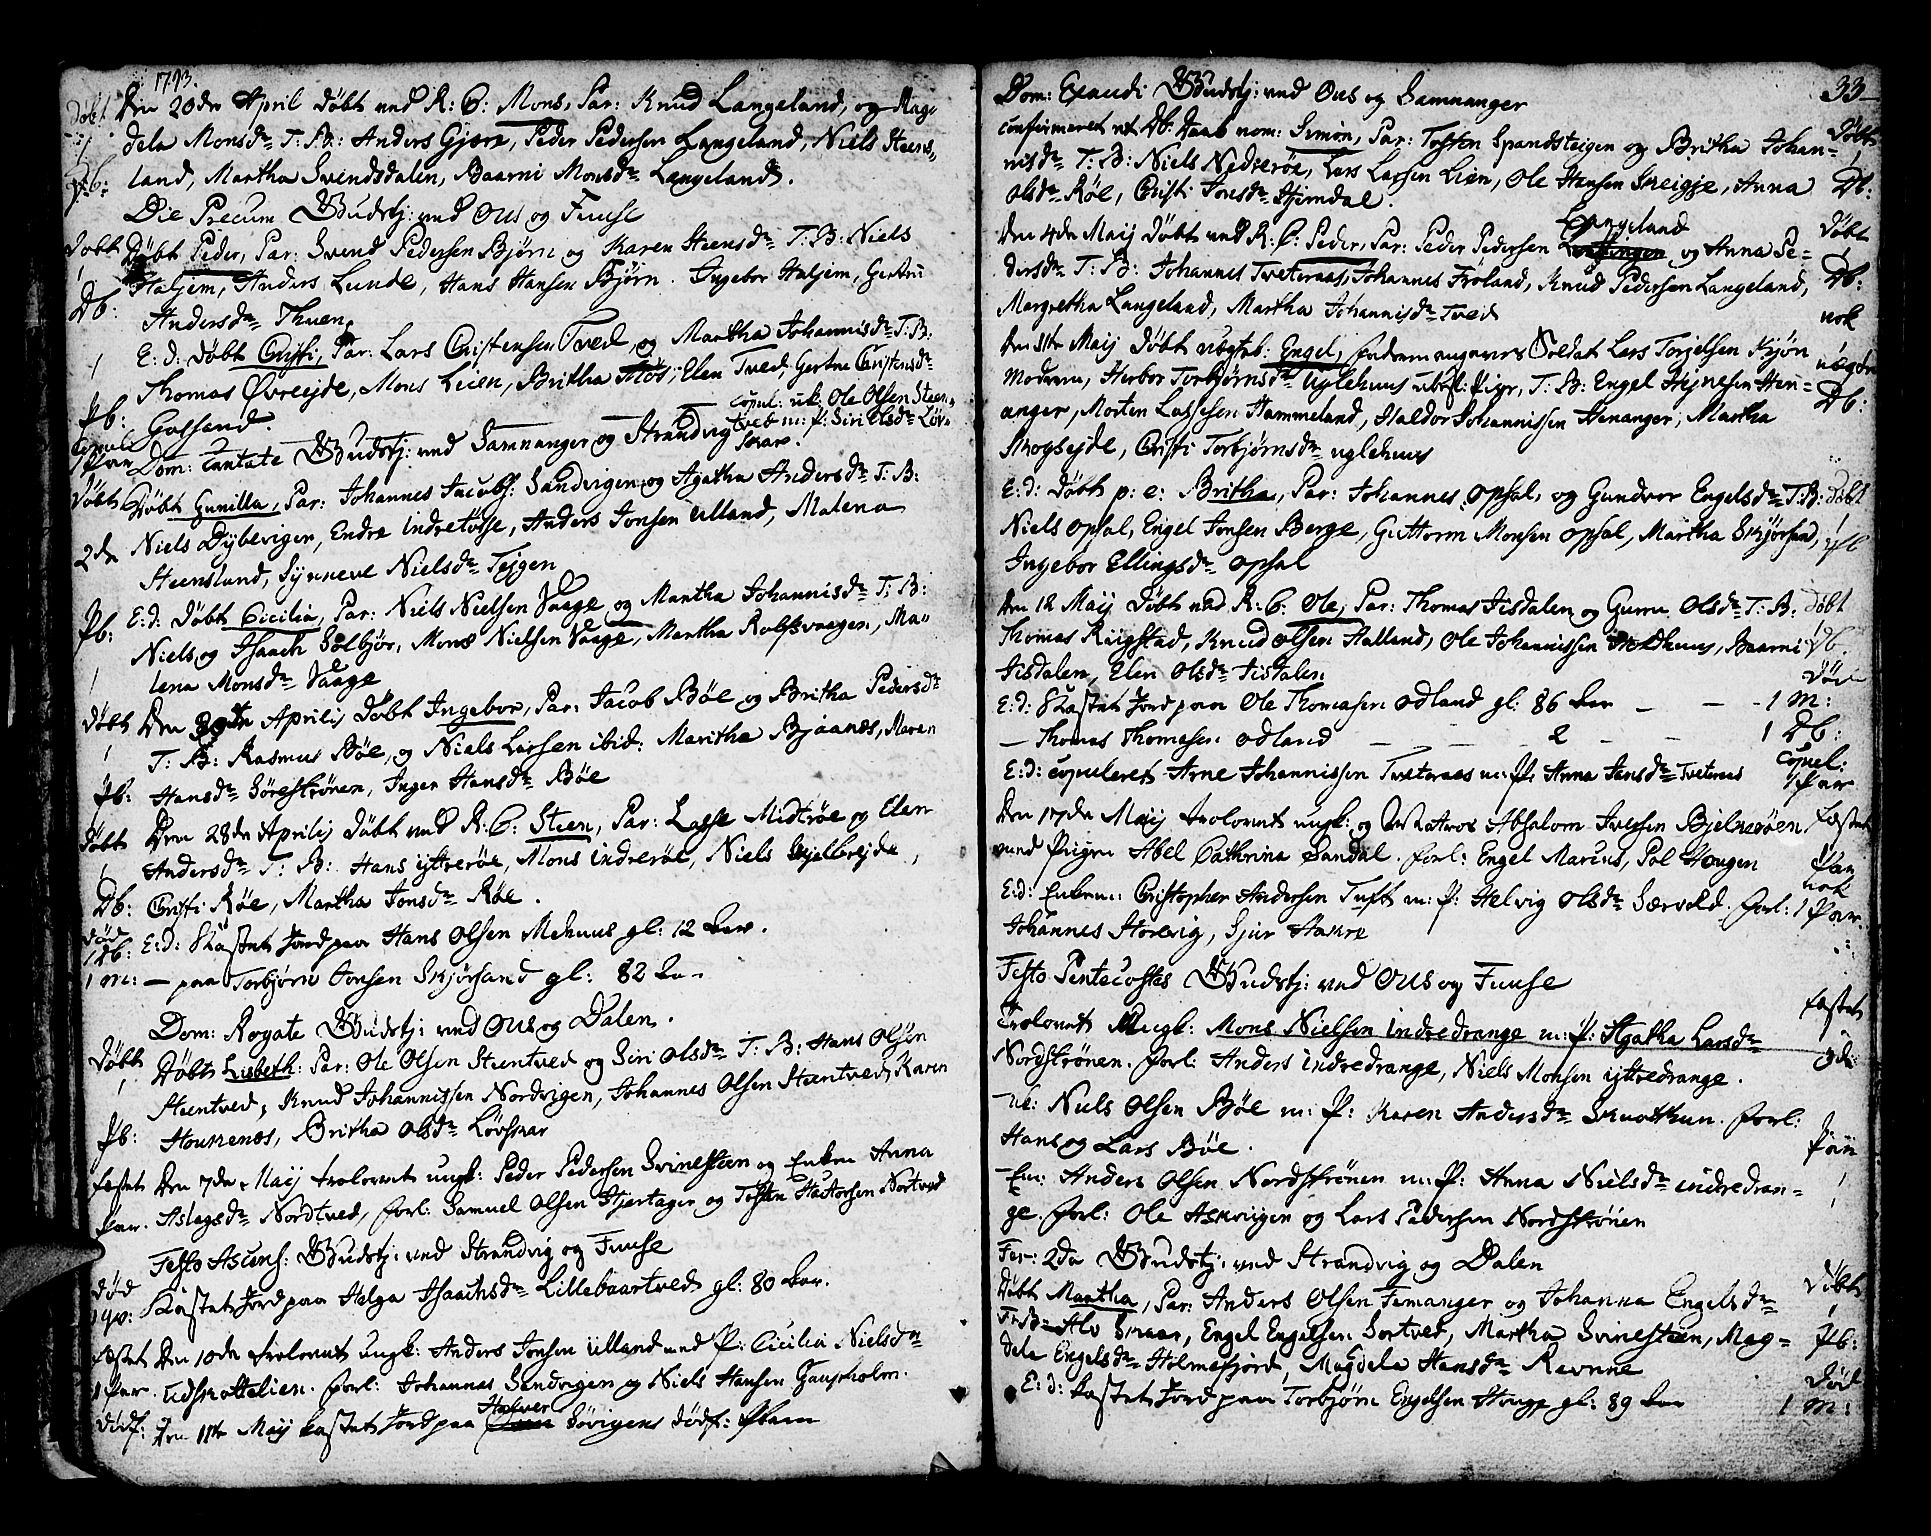 1793.
Døbt Den 20de April Døbt ved R: C: Mons, Par: Knud Langeland, og Mag-
1 dela Monsdr T: B: Anders Gjøre, Peder Pedersen Langeland, Niels Steens-
Db: land, Martha Svendsdalen, Baarni Monsdr Langeland.
Die Precum Gudstj: ved Ous og Fuuse
Døbt Døbt Peder, Par: Svend Pedersen Bjørn og Karen Steensdr T: B: Niels
1 Haljem, Anders Lunde, Hans Hansen Bjørn. Ingebor Haljem, Gertru
Db: Andersdr Thuen.
E: d: Døbt Cristi, Par: Lars Christensen Tved, og Martha Johannisdr T: B:
1 Thomas Øvreejde, Mons Leien, Britha Moss, Elen Tved, Gertru Christensdr
Pb: Gaassand.
Copul: uk: Ole Olsen Steen-
tved m: P: Siri Olsdr Løv-
skar.
Copul 1 Par Dom: Cantate Gudstj: ved Samnanger og Strandvig
Døbt Døbt Gunilla, Par: Johannes Jacobs: Sandvigen og Agatha Andersdr T: B:
2de Niels Dybevigen, Endre indretøsse, Anders Jonsen Ulland, Malena
Steensland, Synneve Nielsdr Tejgen
E: d: Døbt Cicilia, Par: Niels Nielsen Vaage og Martha Johannisdr T: B:
Pb: Niels og Isaach Solbjør, Mons Nielsen Vaage, Martha Rolfsvaagen, Ma-
1 lena Monsdr Vaage
Døbt Den 30te Aprilis Døbt Ingebor, Par: Jacob Bøe og Britha Pedersdr
1 T: B: Rasmus Bøe, og Niels Larsen ibid: Maritha Bjaanes, Maren
Pb: Hansdr Sørestrønen, Inger Hansdr Bøe
Døbt Den 28de Aprilis Døbt ved R: C: Steen, Par: Lasse Midtrøe og Elen
1 Andersdr T: B: Hans ijttrerøe, Mons indrerøe, Niels Skjelbrejde,
Db: Cristi Røe, Martha Jonsdr Røe.
Død 1 Db: E: d: Kastet Jord paa Hans Olsen Mehuus gl: 12 Aar.
1 M: — paa Torbjørn Jonsen Skjørsand gl: 82 Aar
Dom: Rogate Gudstj: ved Ous og Dalen.
Døbt Døbt Lisbeth: Par: Ole Olsen Steentved og Siri Olsdr T: B: Hans Olsen
1 Steentved, Knud Johannissen Nordvigen, Johannes Olsen Steentved, Karen
Pb: Houkenæs, Britha Olsdr Løvskar
Fæstet Den 7de Maij trolovet ungk: Peder Pedersen Svinesteen og Enken Anna
Par. Aslagsdr Nordtved, forl: Samuel Olsen Hjertager og Tosten Haktorsen Nortved
Festo Ascens: Gudstj: ved Strandvig og Fuuse
Død 1 qv: Kastet Jord paa Helga Isaachsdr Lillebaartved gl: 80 Aar.
Fæstet Den 10de trolovet ungk: Anders Jonsen Ulland med P: Cicilia Nielsdr
1 Par. Udskottelien. forl: Johannes Sandvigen og Niels Hansen Gaupholm.
Dødf: Den 11te Maij kastet Jord paa Halver Søvigens dødf: Barn
33
Dom: Exaudi Gudstj: ved Ous og Samnanger
confirmeret et Db: Daab nom: Simon, Par: Tosten Spandsteigen og Britha Johan- Døbt
nisdr T: B: Niels Nedrerøe, Lars Larsen Lien, Ole Hansen Skeigje, Anna 1
Olsdr Røe, Cristi Jonsdr Hjemdal. Db:
Langeland
Den 4de Maij Døbt ved R: C: Peder, Par: Peder Pedersen og Anna Pe- Døbt
dersdr T: B: Johannes Tveteraas, Johannes Frøland, Knud Pedersen Langeland, Db:
Margretha Langeland, Martha Johannisdr Tved nok
Den 11te Maij Døbt uægteb: Engel, Soldat Lars Torjelsen Kyøn uægte
Moderen, Herbor Torbjørnsdr Uglehuus Pige, T: B: Engel Hejnesen Hen- Db:
anger, Morten Lassesen Hammeland, Haldor Johannissen Henanger, Martha
Skogsejde, Cristi Torbjørnsdr uglehuus
E: d: Døbt p: e: Britha, Par: Johannes Opsal, og Gundvor Engelsdr T: B: Døbt
Niels Opsal, Engel Jonsen Berge, Guttorm Monsen Opsal, Martha Skjørsand, 1
Ingebor Ellingsdr Opsal
Den 12 Maij Døbt ved R: C: Ole, Par: Thomas Tisdalen og Guru Olsdr T: B: Døbt
Thomas Røgstad, Knud Olsen Halland, Ole Johannissen Moldhuus, Baarni Db.
Tisdalen, Elen Olsdr Tisdalen Død
E: d: Kastet Jord paa Ole Thomasen Odland gl: 86 Aar — — — 1 M:
— Thomas Thomasen Odland — — — 2 — — 1 Db:
E: d: copuleret Arne Johannissen Tveteraas m: P: Anna Jansdr Tveteraas Copul: 1 Par
Den 17de Maij trolovet ungk: og Matros Absalom Iversen Bjelkerøen Fæstet
med Pigen Abel Cathrina Sandal. forl: Engel Marcus, Pol Hougen 1 Par nok
E: d: Enkem: Christopher Andersen Tuft m: P: Helvig Olsdr Særvold. forl: 1 Par.
Johannes Storevig, Sjur Hakre
Festo Pentecostes Gudstj: ved Ous og Fuuse
Trolovet ungk: Mons Nielsen indredrange m: P: Agatha Larsdr Fæstet
Nordstrønen. forl: Anders indredrange, Niels Monsen ijttredrange. 3de
uk: Niels Olsen Bøe m: P: Karen Andersdr Skuothun. forl:
Hans og Lars Bøe. Par
Em: Anders Olsen Nordstrønen m: P: Anna Nielsdr indredran-
ge. forl: Ole Askvigen og Lars Pedersen Nordstrønen
Fer: 2da Gudstj: ved Strandvig og Dalen
Døbt Martha, Par: Anders Olsen Femanger og Johanna Engelsdr Døbt
T: B: Alv Skaar, Engel Engelsen Sortved, Martha Svinesteen, Mag- Pb:
dela Engelsdr Holmefjord, Magdela Hansdr Ravnne Død
E: d: kastet Jord paa Torbjørn Engelsen Houge gl: 89 Aar 1 M: